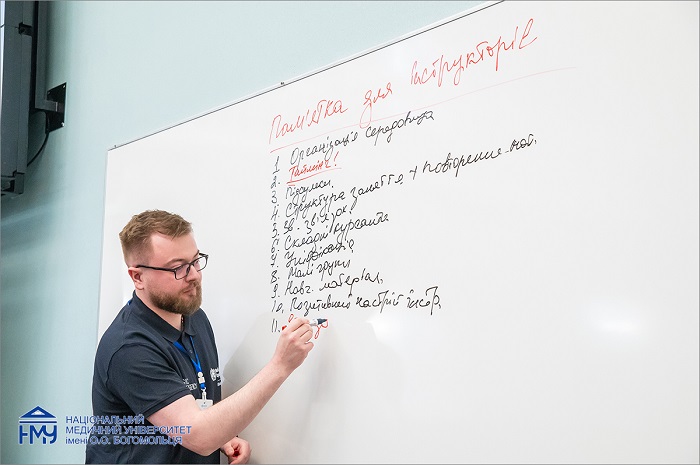 Пам'ятка для інструкторів
1. Організація середовища
2. Таймінг!
3. Підсумки.
4. Структура заняття + повторення
5. Зв. зв'язок
6. Складні курсанти
7. Уніфікація
8. Малі групи
9. Навч. матеріал.
10. Позитивний настрій інстр.
11.
НАЦІОНАЛЬНИЙ
МЕДИЧНИЙ УНІВЕРСИТЕТ
імені О.О. БОГОМОЛЬЦЯ
НМУ